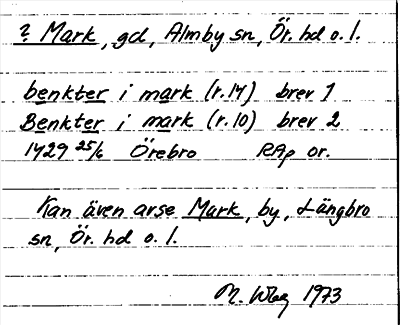 ? Mark, gd, Almby sn, Ör. hd o. l.
benkter i mark (r. 14) brev 1
Benkter i mark (r. 10) brev 2
1429 25/6 Örebro RAp or.
Kan även avse Mark, by, Längbro
sn, Ör. hd o. l.
M. Wbg 1973